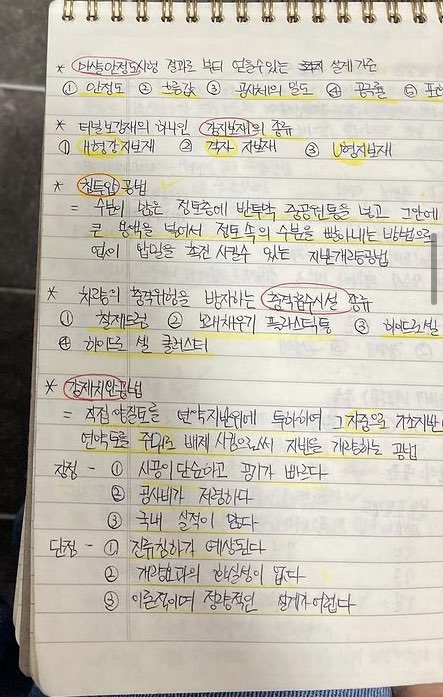 * 마샬안정도시험 결과로 부터 얻을수있는 설계기준
① 안정도 ② 흐름값 ③ 공시체의 밀도 ④ 공극률 ⑤ 포화
* 터널보강재의 하나인 강지보재의 종류
① H형강지보재 ② 격자 지보재 ③ U형지보재
* 침투압공법
= 수분이 많은 점토층에 반투막 중공원통을 넣고 그안에
큰 용액을 넣어서 점토속의 수분을 빨아내는 방법으로
압밀을 촉진 시킬수 있는 지반개량공법
* 차량의 충격위험을 방지하는 충격흡수시설 종류
① 철제드럼 ② 모래채우기 플라스틱통 ③ 하이드로셀
④ 하이드로 셀 클러스터
* 강제치환공법
= 직접 양질토를 연약지반위에 투하하여 그자중으로 기초지반
연약토를 주위로 배제 시킴으로써 지반을 개량하는 공법
장점 - ① 시공이 단순하고 공기가 빠르다
② 공사비가 저렴하다
③ 국내 실적이 많다
단점 - ① 잔류침하가 예상된다
② 개량효과의 확실성이 없다
③ 이론적이며 정량적인 설계가 어렵다